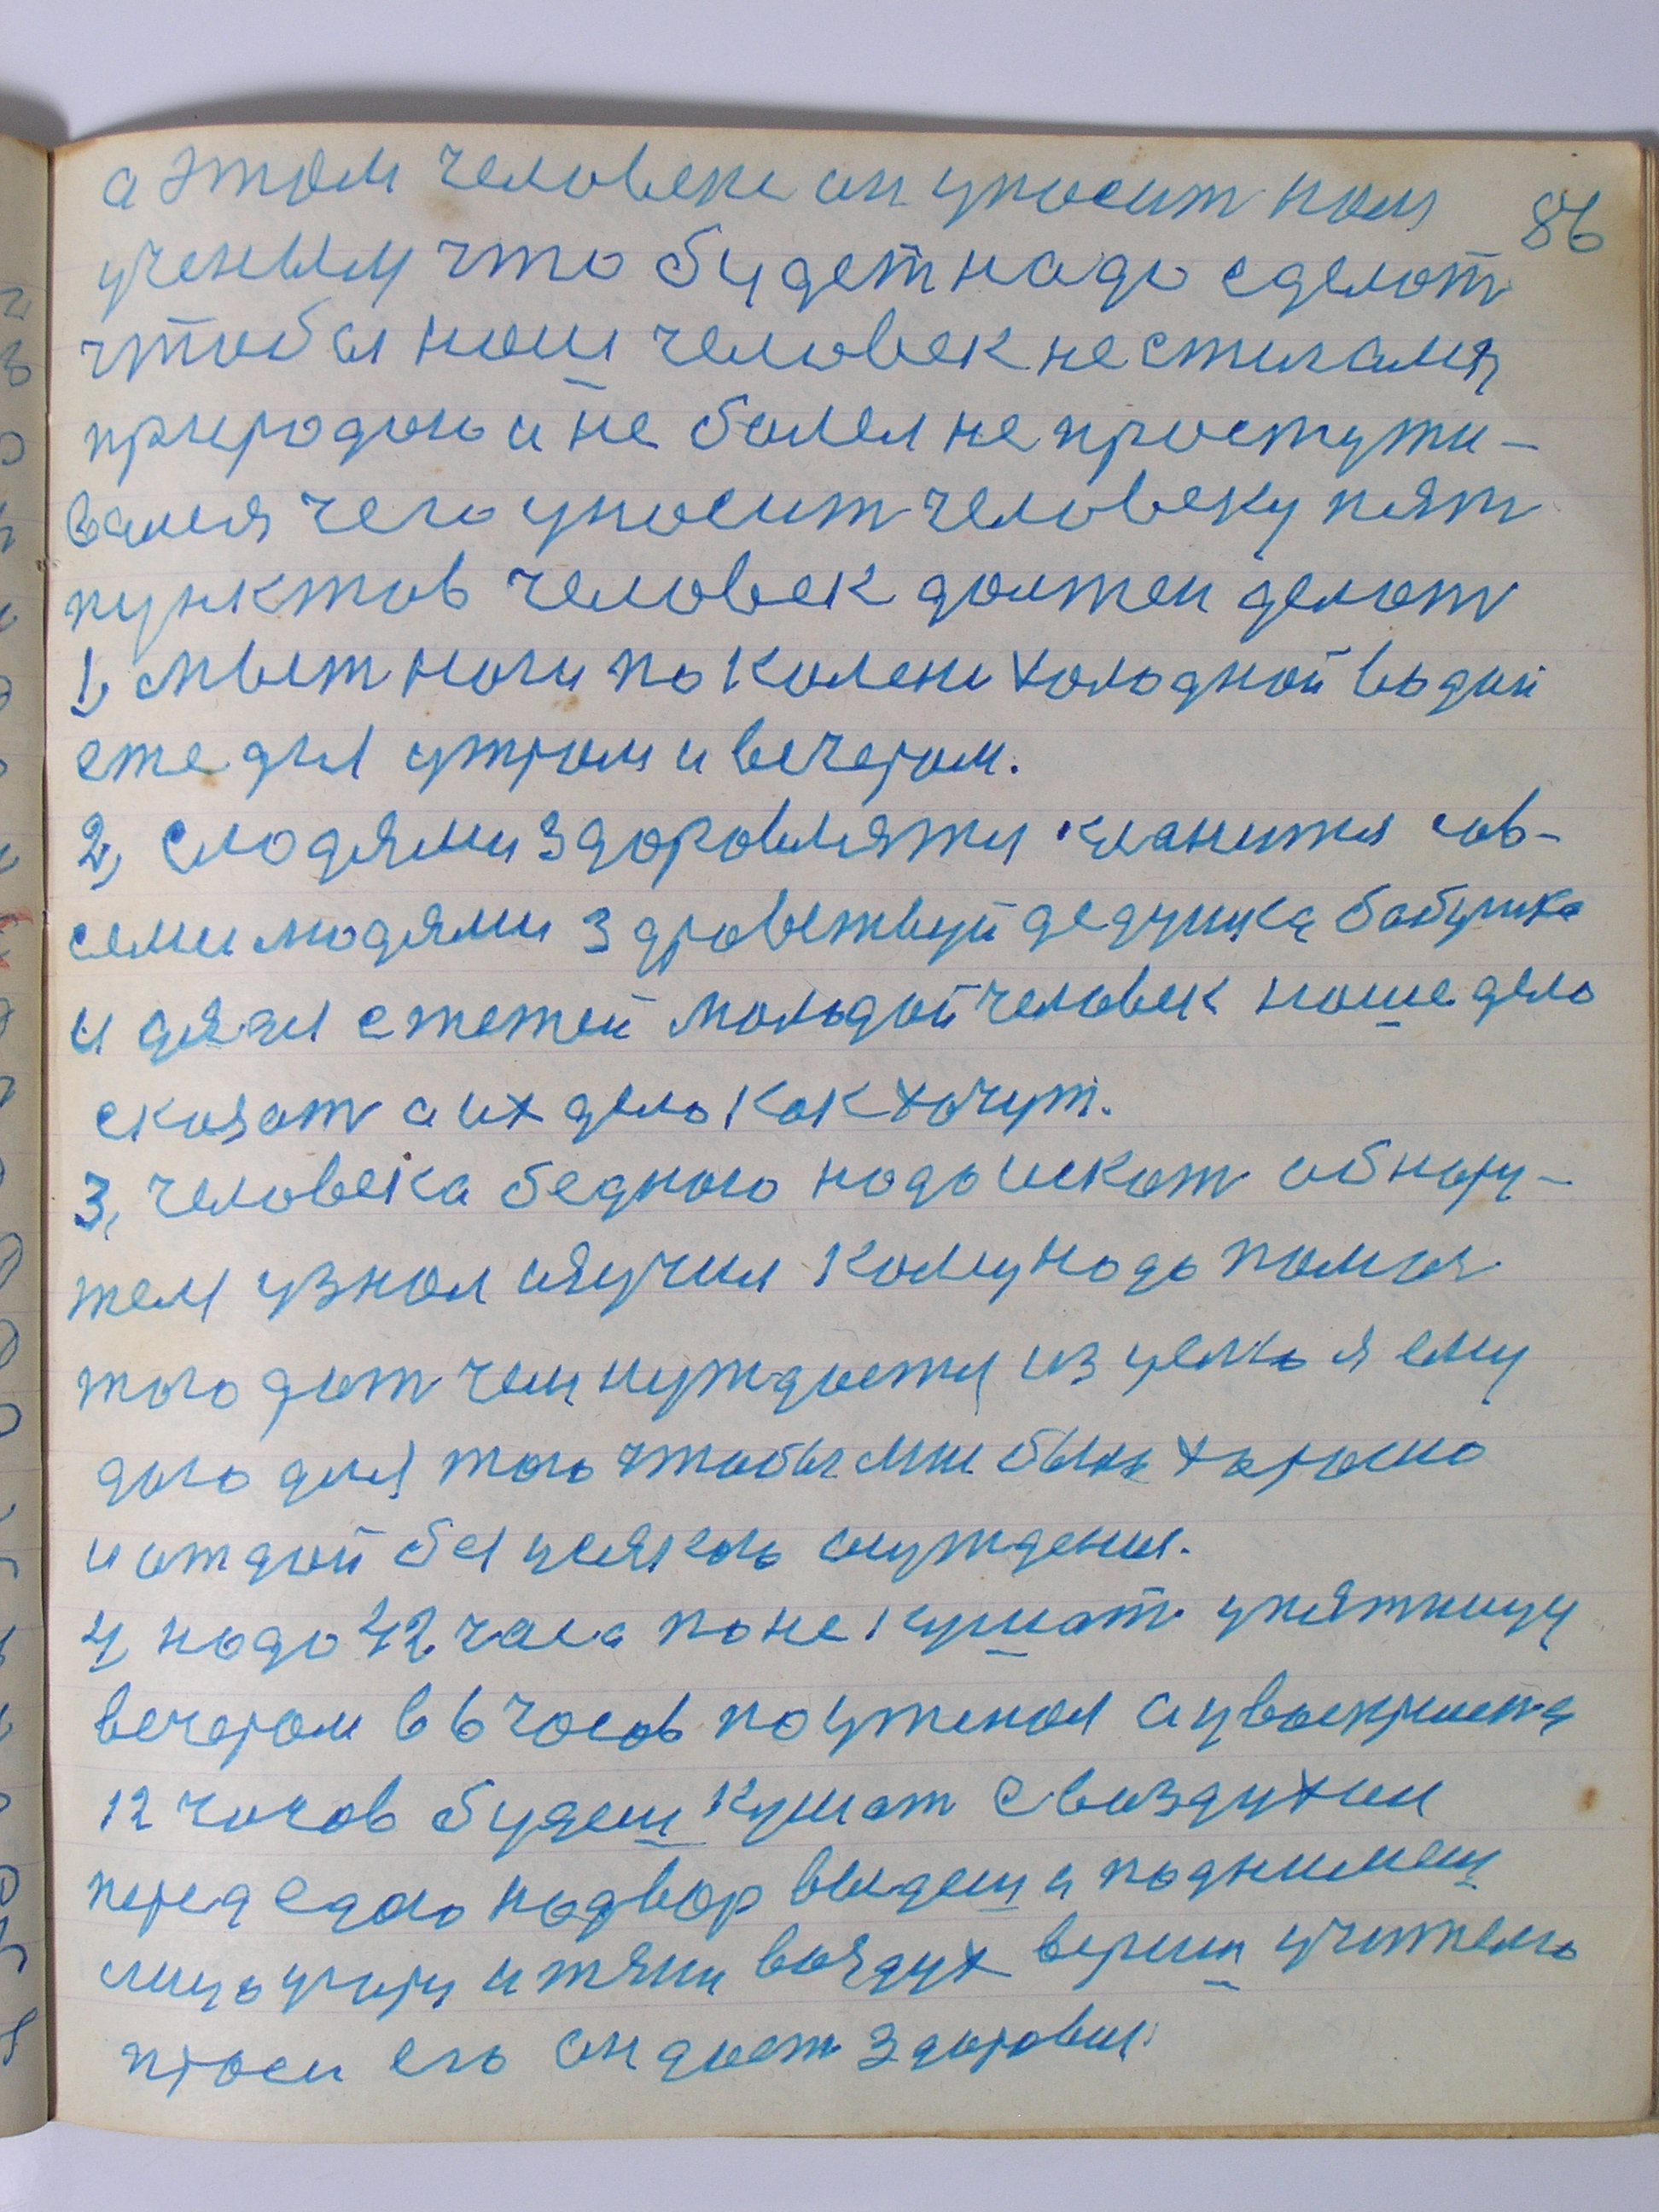 а этом человеке он упосит нам 86
ученым что будет надо сделат
чтобы наш человек не стигался
природою и не болел не простути-
вался чего упосит человеку пят
пунктов человек должен делат
1, мыет ноги по колени холодной водой
еже дня утром и вечером.
2, слюдями здоровлятся кланится сов-
семи людями здравствуй дедушка бабушка
и дядя с тетей молодой человек наше дело
сказат а их дело как хочут.
3, человека бедного надо искат обнару-
жел узнал изучил кому надо
того дат чем нуждается из цело я ему
даю для того чтобы мне было хорошо
и отдой без усякого осуждения.
4, надо 42 часа по не кушат упятницу
вечером в 6 часов поужинал а увоскресеня
12 часов будеш кушат с воздухом
перед едою надвор выдеш и поднимеш
лицо угору и тяни воздух вериш учителю
проси его он даст здоровия